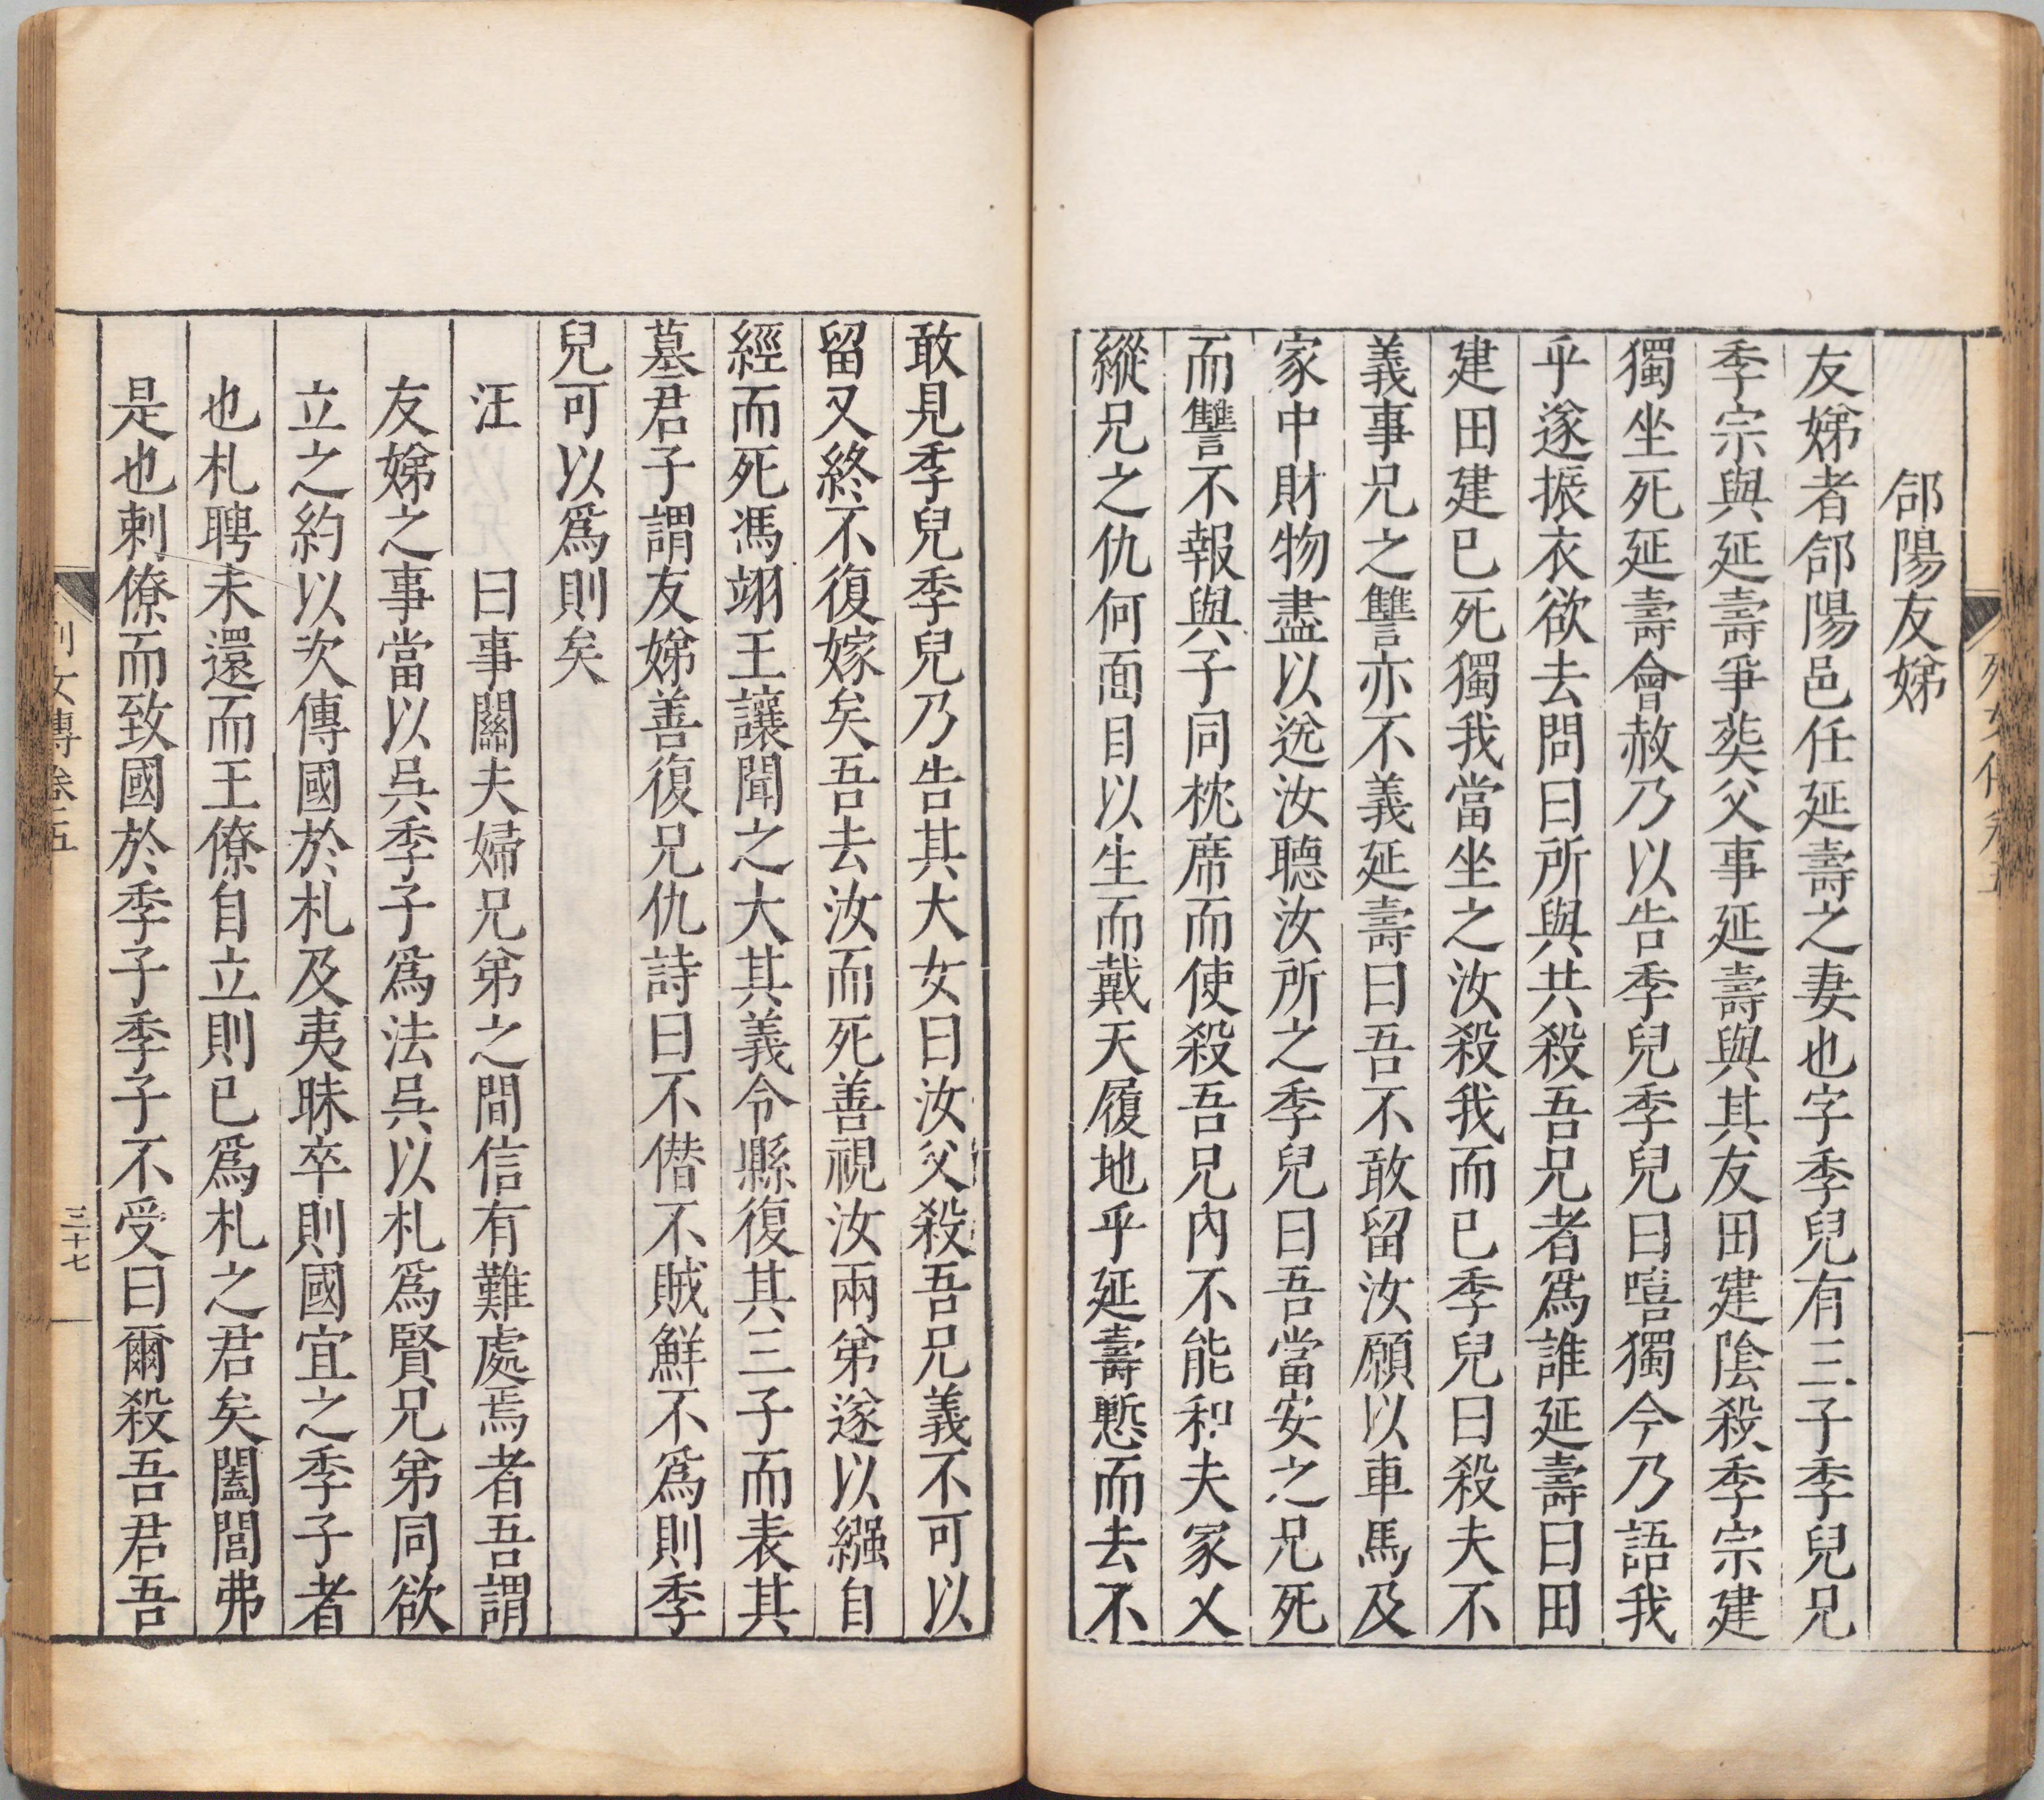 郃陽友娣
友娣者郃陽邑任延壽之妻也字季兒有三子季兒兄
季宗與延壽爭葬父事延壽與其友田建陰殺季宗建
獨坐死延壽會赦乃以告季兒季兒曰嘻獨今乃語我
乎遂振衣欲去問曰所與共殺吾兄者爲誰延壽曰田
建田建已死獨我當坐之汝殺我而已季兒曰殺夫不
義事兄之讐亦不義延壽曰吾不敢留汝願以車馬及
家中財物盡以送汝聽汝所之季兒曰吾當安之兄死
而讐不報與子同枕席而使殺吾兄內不能和夫家又
縱兄之仇何面目以生而戴天履地乎延壽慙而去不
敢見季兒季兒乃告其大女曰汝父殺吾兄義不可以
留又終不復嫁矣吾去汝而死善視汝兩弟遂以繦自
經而死馮翊王讓聞之大其義令縣復其三子而表其
墓君子謂友娣善復兄仇詩曰不僣不賊鮮不爲則季
兒可以爲則矣
汪 曰事關夫婦兄弟之間信有難處焉者吾謂
友娣之事當以吳季子爲法吳以札爲賢兄弟同欲
立之約以次傳國於札及夷昧卒則國宜之季子者
也札聘未還而王僚自立則已爲札之君矣闔閭弗
是也刺僚而致國於季子季子不受曰爾殺吾君吾
列女傳卷五
三十七